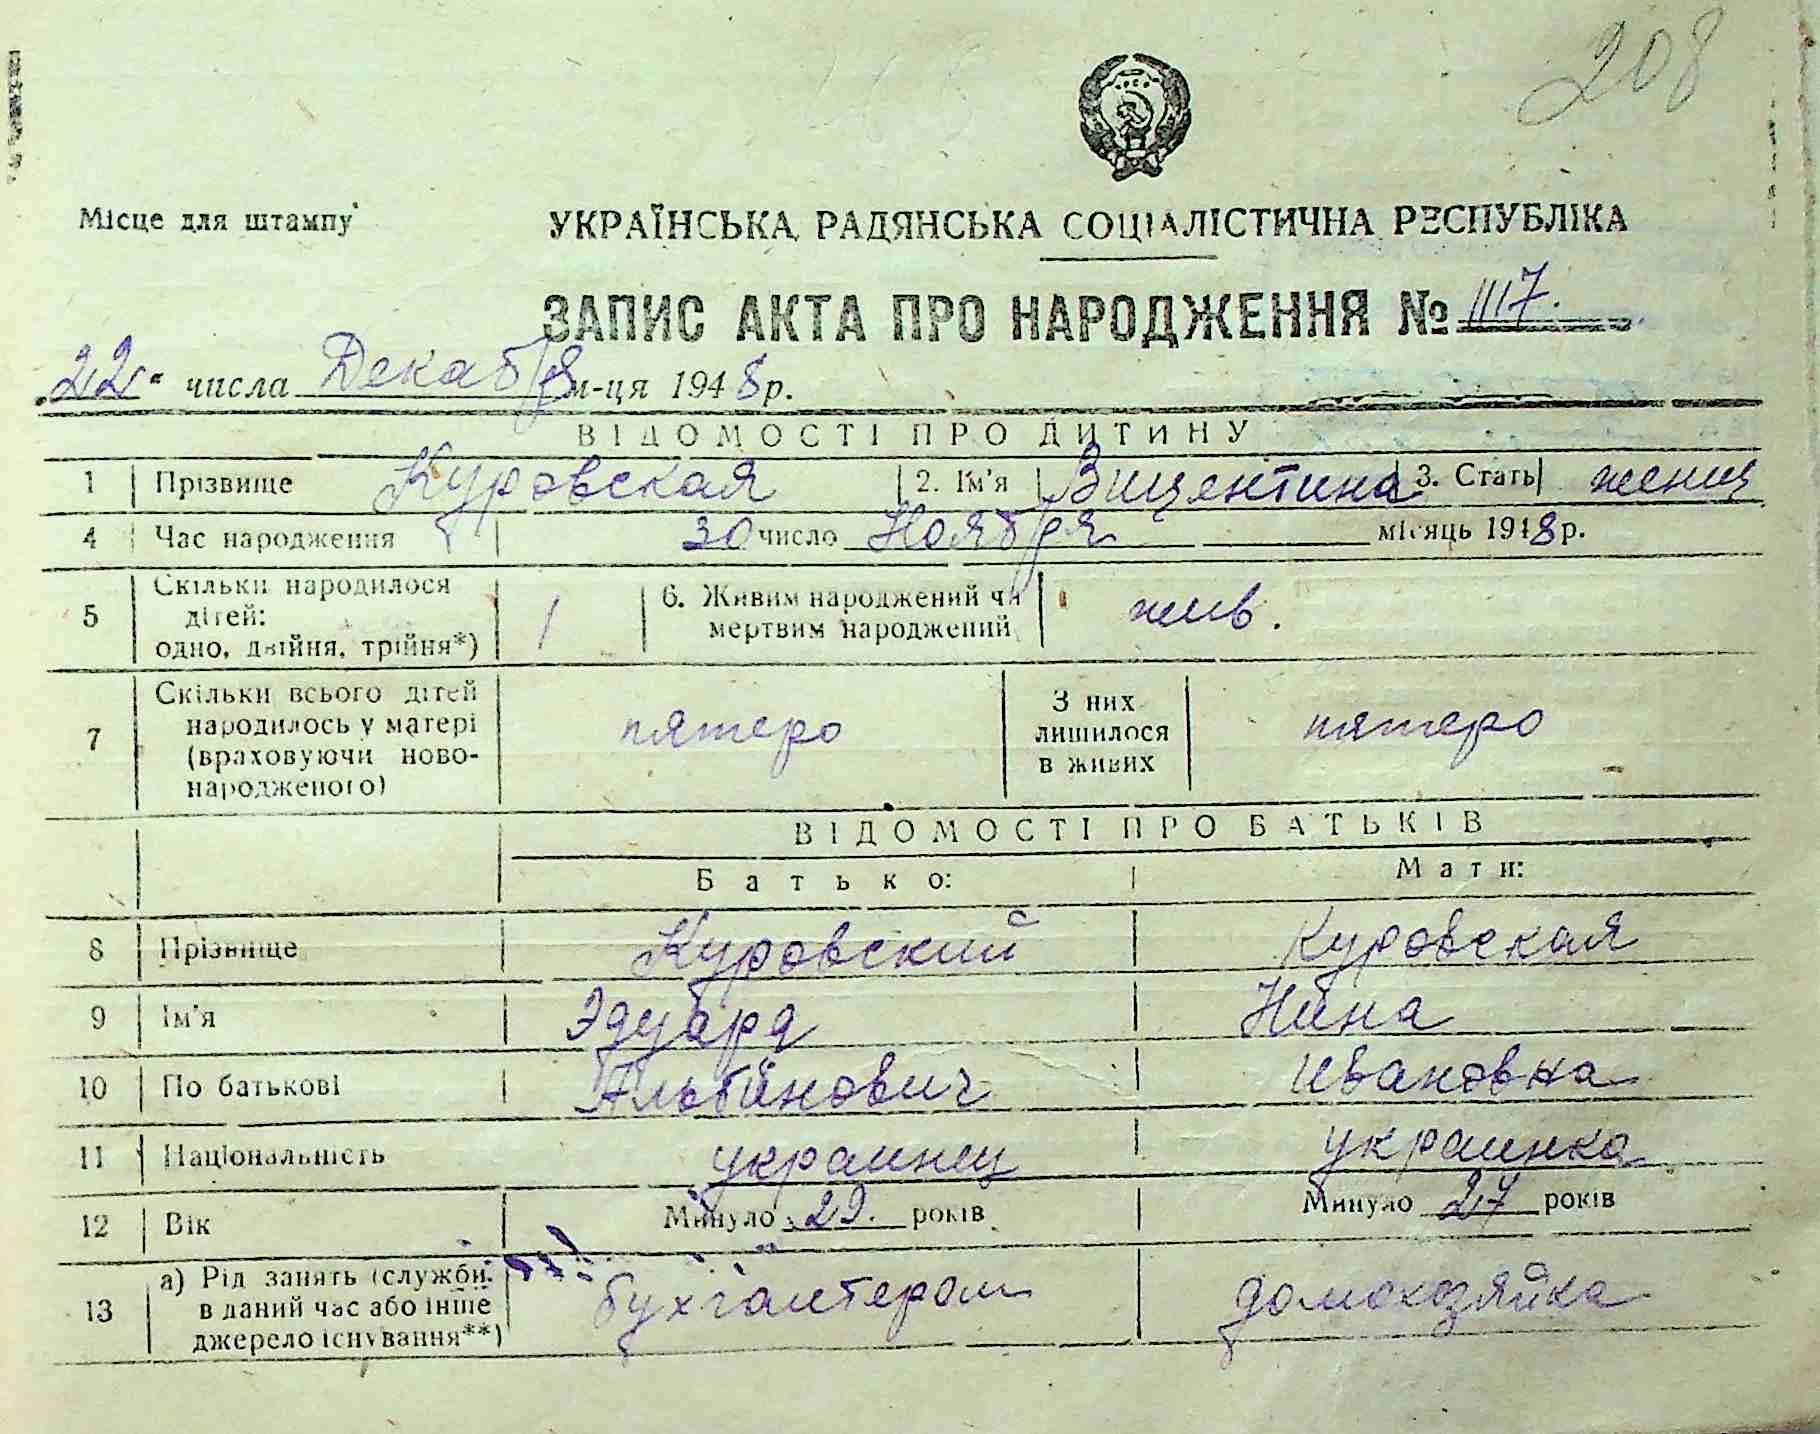 208
Місце для штампу
УКРАЇНСЬКА РАДЯНСЬКА СОЦІАЛІСТИЧНА РЕСПУБЛІКА
ЗАПИС АКТА ПРО НАРОДЖЕННЯ № 1117.
„22" числа Декабря м-ця 1948 р.
ВІДОМОСТІ ПРО ДИТИНУ
1 Прізвище Куровская 2. Ім'я Вицентина 3. Стать женщ
4 Час народження 30 число Ноября місяць 1948 р.
5 Скільки народилося дітей: одно, двійня, трійня*) 1 6. Живим народжений чи мертвим народжений жив.
7 Скільки всього дітей народилось у матері (враховуючи ново-народженого) пятеро З них лишилося в живих пятеро
ВІДОМОСТІ ПРО БАТЬКІВ
Батько: Мати:
8 Прізвище Куровский Куровская
9 Ім'я Эдуард Нина
10 По батькові Альбинович Ивановна
11 Національність украинец украинка
12 Вік Минуло 29. років Минуло 27 років
13 а) Рід занять (служби) в даний час або інше джерело існування**) бухгалтером домохозяйка